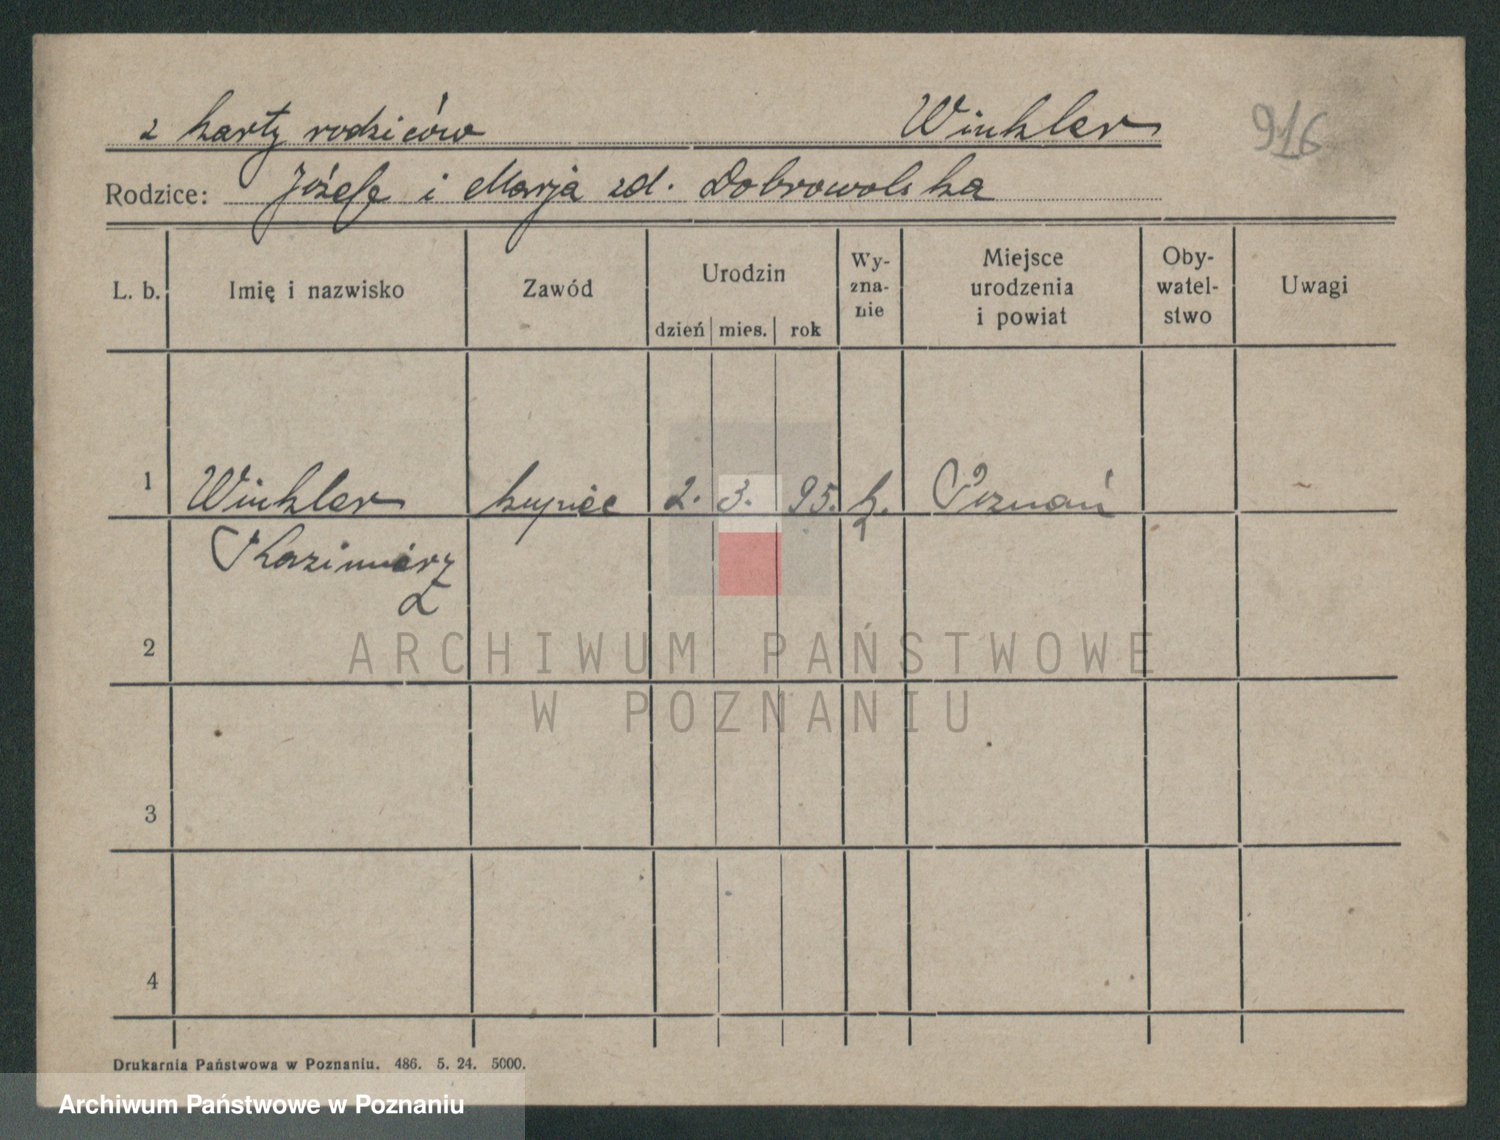 z karty rodziców Winkler 916
Rodzice: Józef i Marja zd. Dobrowolska
L. b. Imię i nazwisko Zawód Urodzin dzień mies. rok Wy-zna-nie Miejsce urodzenia i powiat Oby-watel-stwo Uwagi
1 Winkler kupiec 2. 3. 95. k. Poznań
Kazimierz
2
ARCHIWUM PAŃSTWOWE
W POZNANIU
3
4
Drukarnia Państwowa w Poznaniu. 486. 5. 24. 5000.
Archiwum Państwowe w Poznaniu